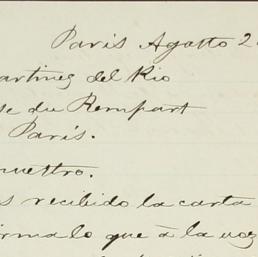 Paris Agosto 2
artinez del Rio
se du Rempart
Paris.
nuestro.
s recibido la carta
irma lo que á la vez